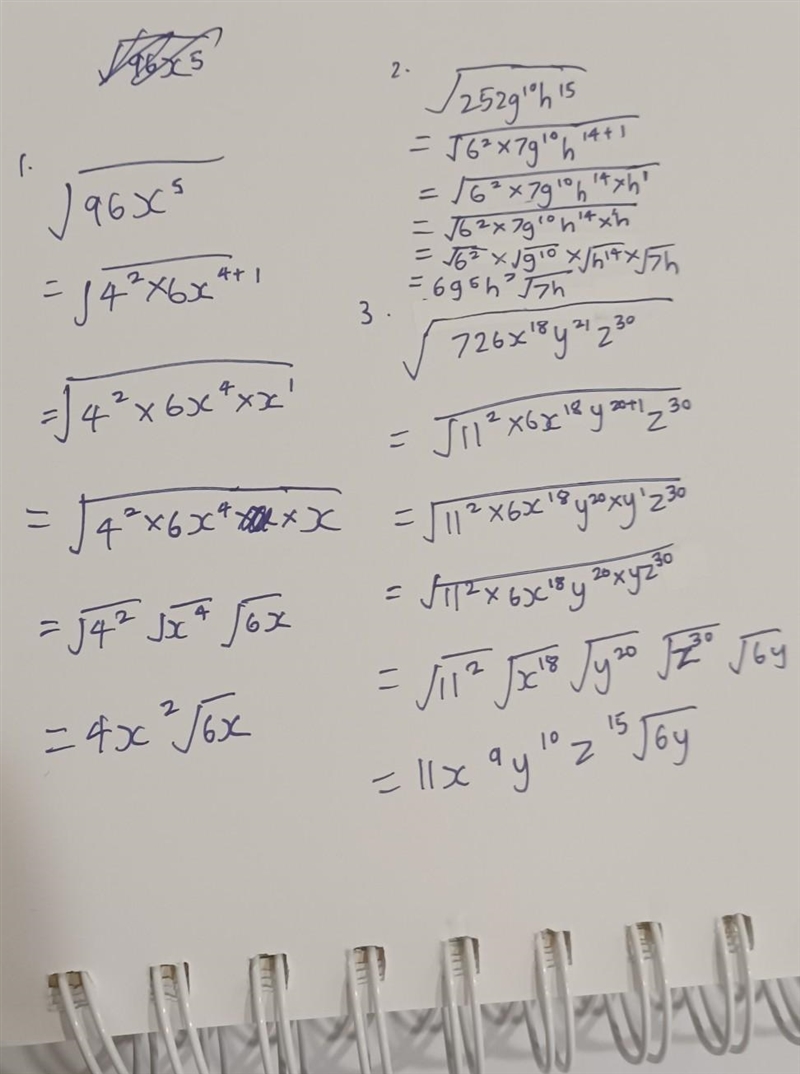 1.
√96x⁵
= √4² × 6x⁴⁺¹
= √4² × 6x⁴ × x¹
= √4² × 6x⁴ × x
= √4² √x⁴ √6x
= 4x² √6x
2.
√252g¹⁰h¹⁵
= √6² × 7g¹⁰h¹⁴⁺¹
= √6² × 7g¹⁰h¹⁴ × h¹
= √6² × 7g¹⁰h¹⁴ × h
= √6² × √g¹⁰ × √h¹⁴ × √7h
= 6g⁵h⁷ √7h
3.
√726x¹⁸y²¹z³⁰
= √11² × 6x¹⁸y²⁰⁺¹z³⁰
= √11² × 6x¹⁸y²⁰ × y¹z³⁰
= √11² × 6x¹⁸y²⁰ × yz³⁰
= √11² √x¹⁸ √y²⁰ √z³⁰ √6y
= 11x⁹y¹⁰z¹⁵ √6y